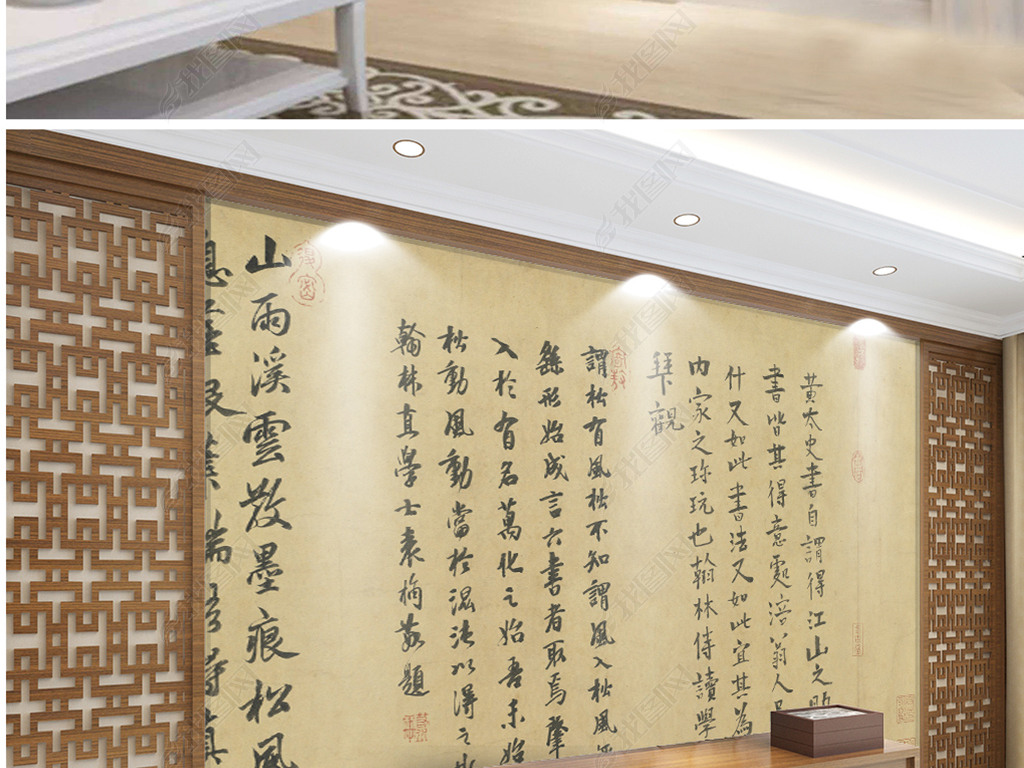 黄太史書自謂得江山之
書皆其得意處涪翁人
什又如此書法又如此宜其為
内家之珎玩也翰林侍讀學
拜觀
謂松有風松不知謂風入松風
繇形始成言六書者取焉肇
入於有名萬化之始吾未始
松動風動當於混沌以得之
翰林直學士袁桷敬題
山雨溪雲散墨痕松風
找图网